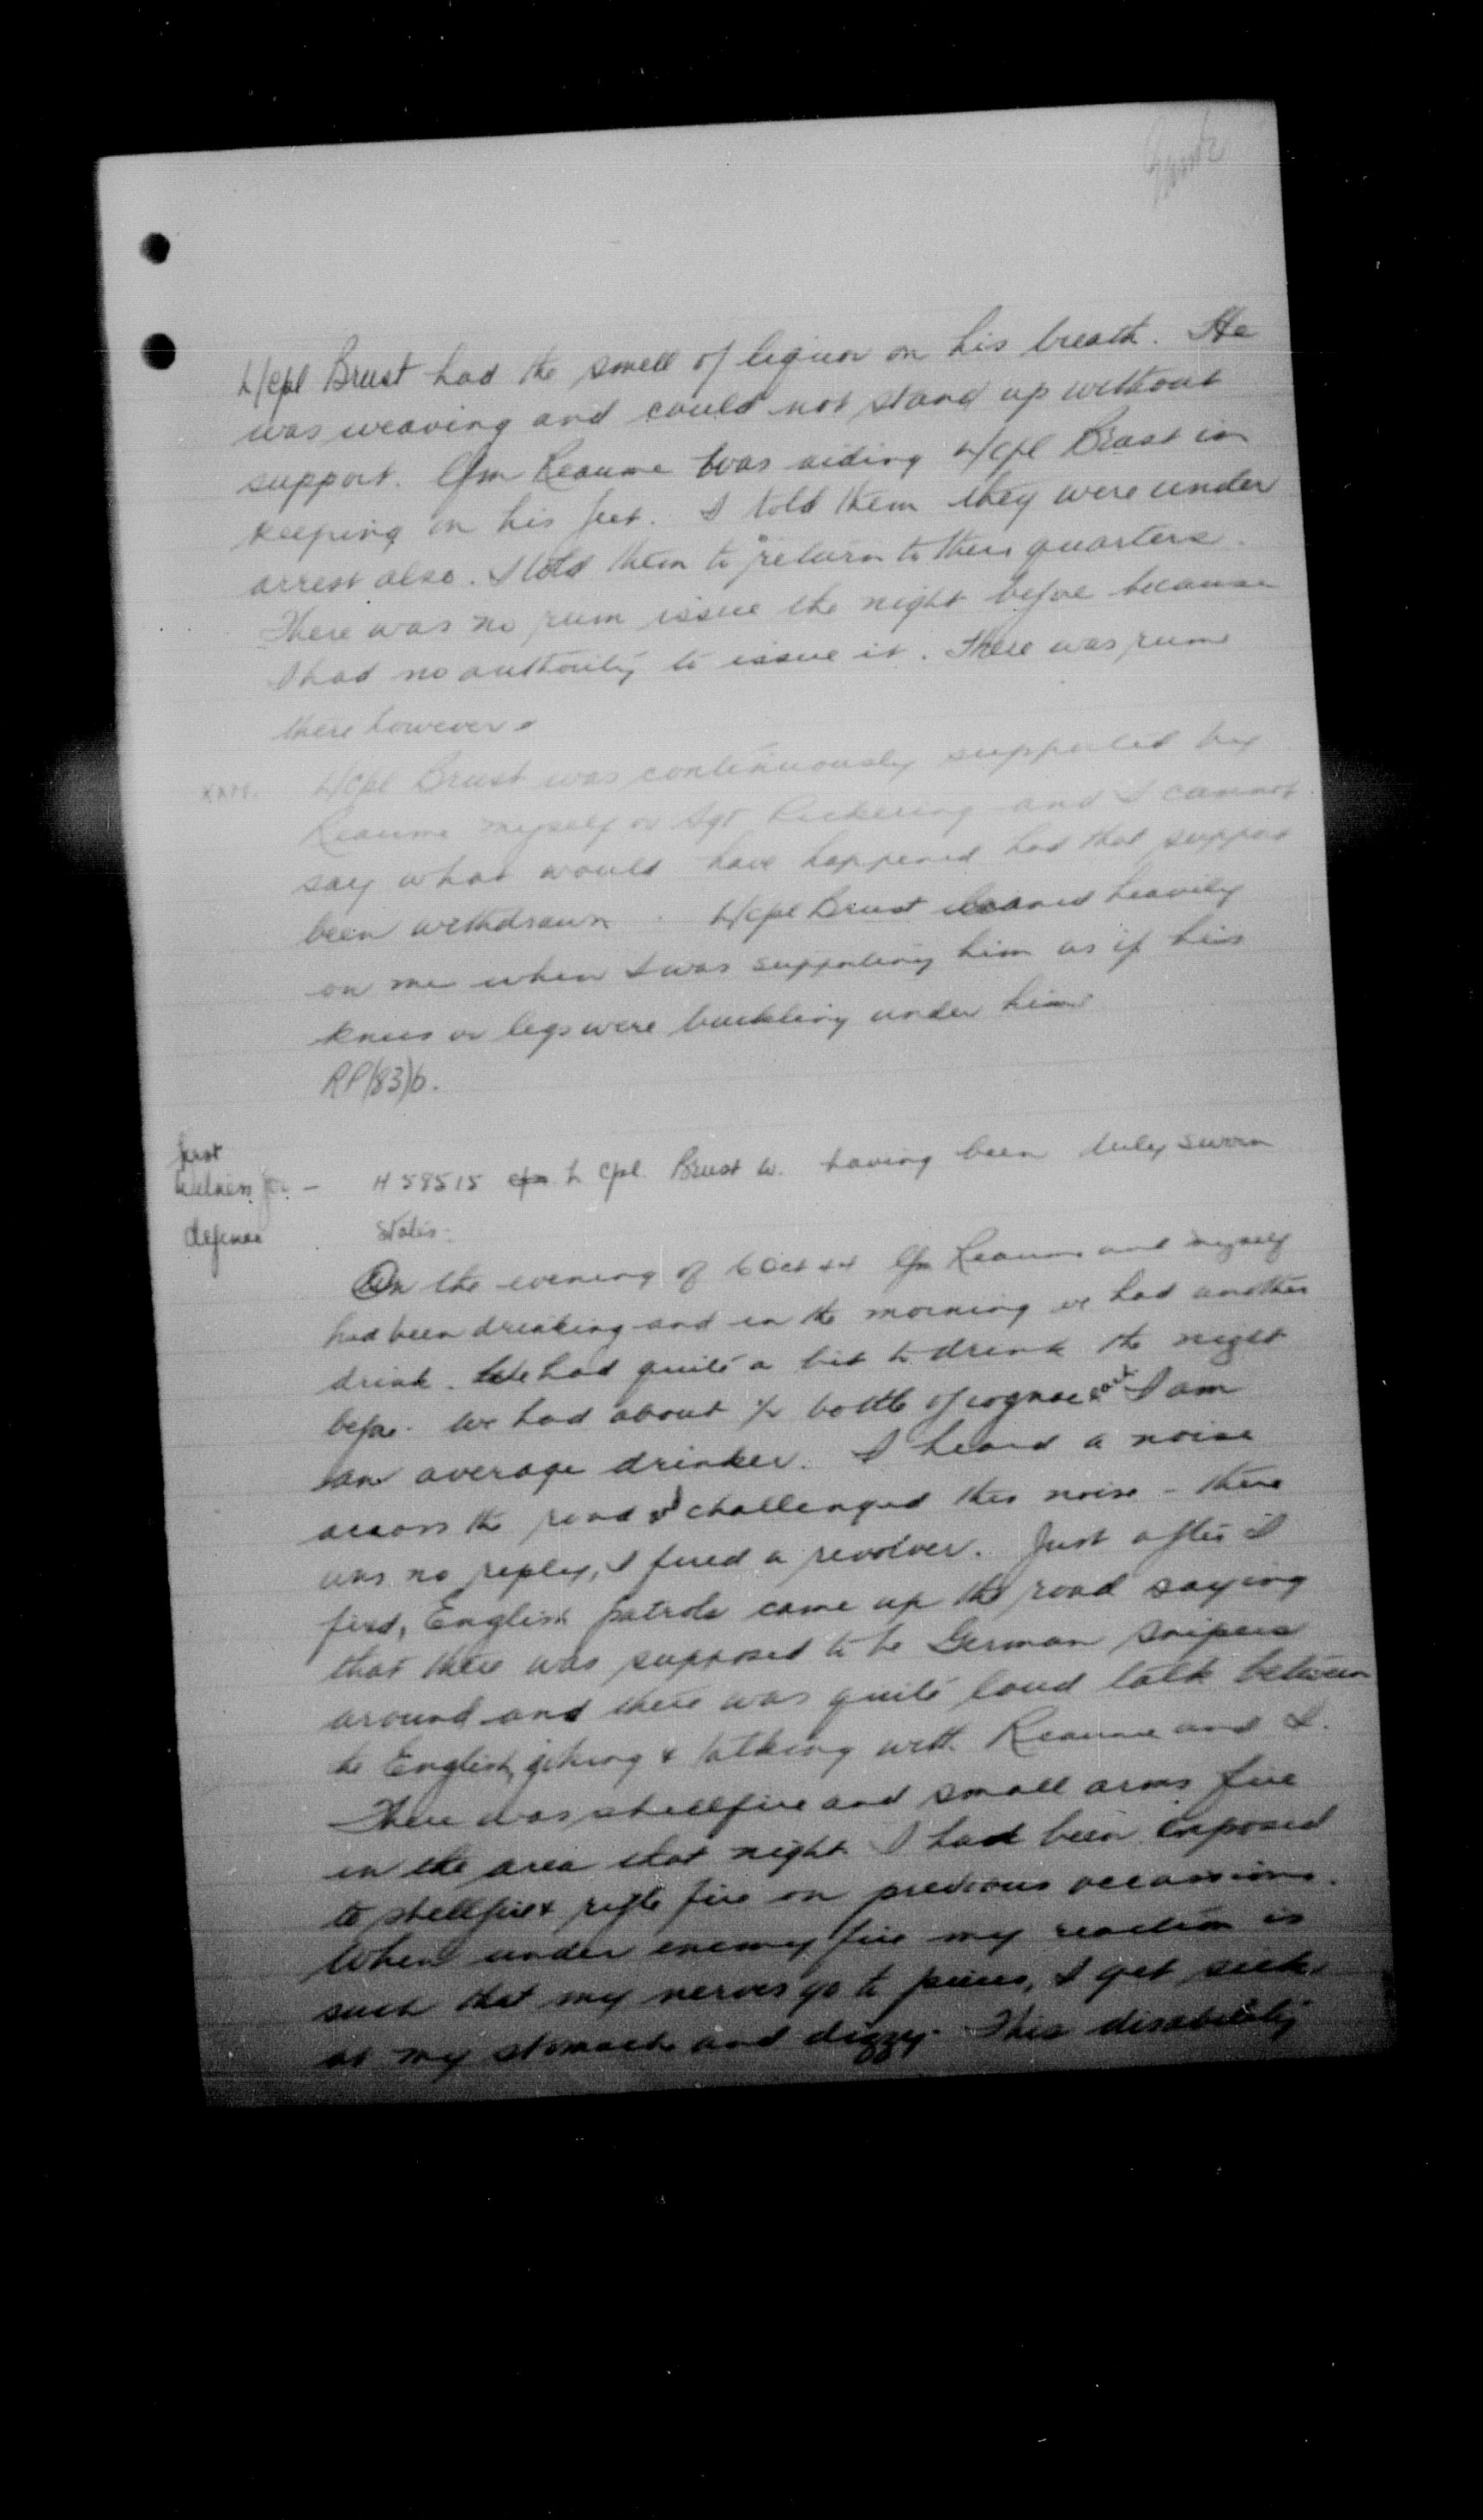 L/Cpl Brust had the smell of liquor on his breath. He
was weaving and could not stand up without
support. Cfn Reaume was aiding L/Cpl Brust in
keeping on his feet. I told them they were under
arrest also. I told them to return to their quarters.
There was no rum issue the night before because
I had no authority to issue it. There was rum
there however.
XXM. L/Cpl Brust was continuously supported by
Reaume myself or Sgt Pickering and I cannot
say what would have happened had that support
been withdrawn. L/Cpl Brust leaned heavily
on me when I was supporting him as if his
knees or legs were buckling under him
RP(83)b.
first
witness for –
defence
H 58515 L Cpl. Brust W. having been duly sworn
States:
On the evening of 6 Oct 44 Cfn Reaume and myself
had been drinking and in the morning we had another
drink. We had quite a bit to drink the night
before. We had about ½ bottle of cognac each I am
an average drinker. I heard a noise
across the road & challenged this noise – there
was no reply, I fired a revolver. Just after I
fired, English patrols came up the road saying
that there was supposed to be German snipers
around and there was quite loud talk between
the English, joking & talking with Reaume and I.
There was shellfire and small arms fire
in the area that night I had been exposed
to shellfire & rifle fire on previous occassions.
When under enemy fire my reaction is
such that my nerves go to pieces, I get sick
at my stomach and dizzy. This disability